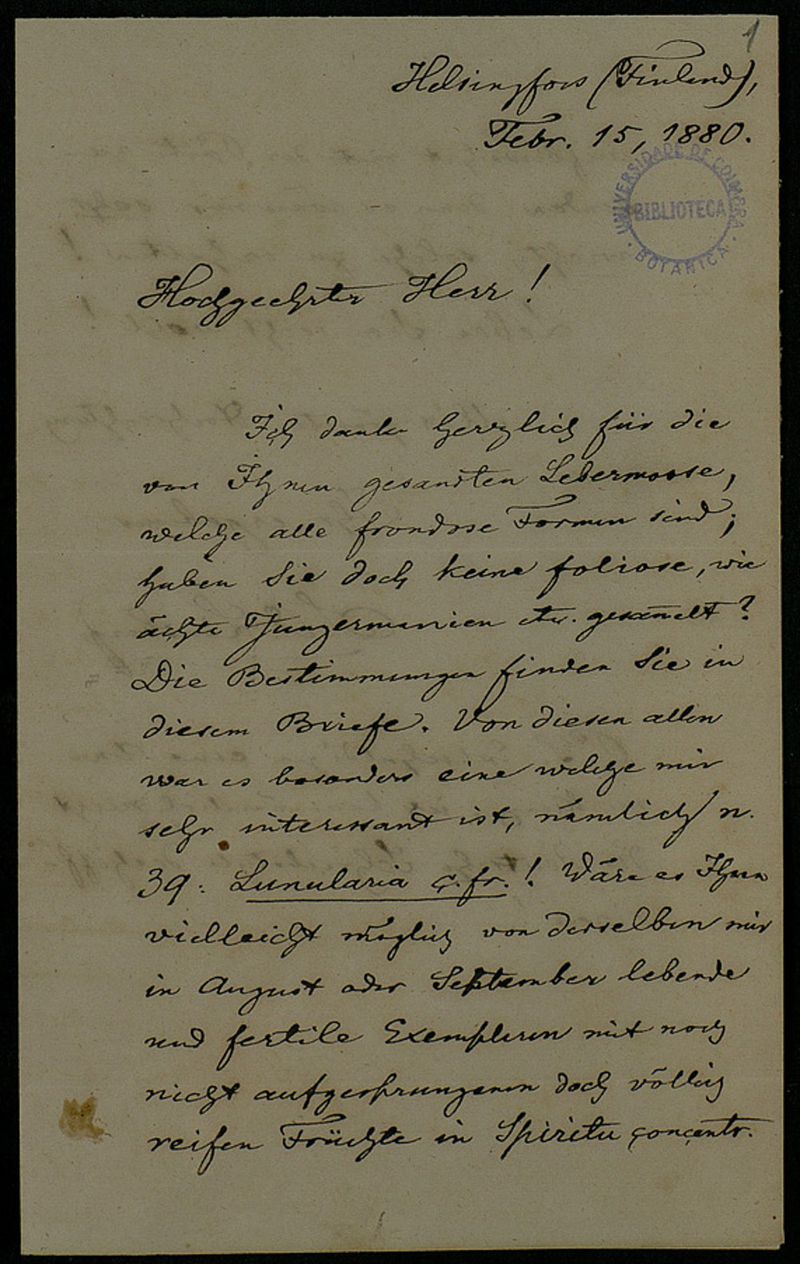 1
Helsingfors (Finland),
Febr. 15, 1880.
UNIVERSIDADE DE COIMBRA
BIBLIOTECA
BOTANICA
Hochgeehrter Herr!
Ich danke herzlich für die
von Ihnen gesandten Lebermoose,
welche alle frondose Formen sind;
haben Sie doch keine foliose, wie
ächte Jungermanien etc. gesam̄elt?
Die Bestimmungen finden Sie in
diesem Briefe. Von diesen allen
war es besonders eine welche mir
sehr interessant ist, nämlich n.
39: Lunularia c. fr.! Wäre es Ihnen
vielleicht möglich von derselben mir
in August oder September lebende
und fertile Exemplaren mit noch
nicht aufgesprungenen doch völlig
reifen Früchte in Spiritu concentr.